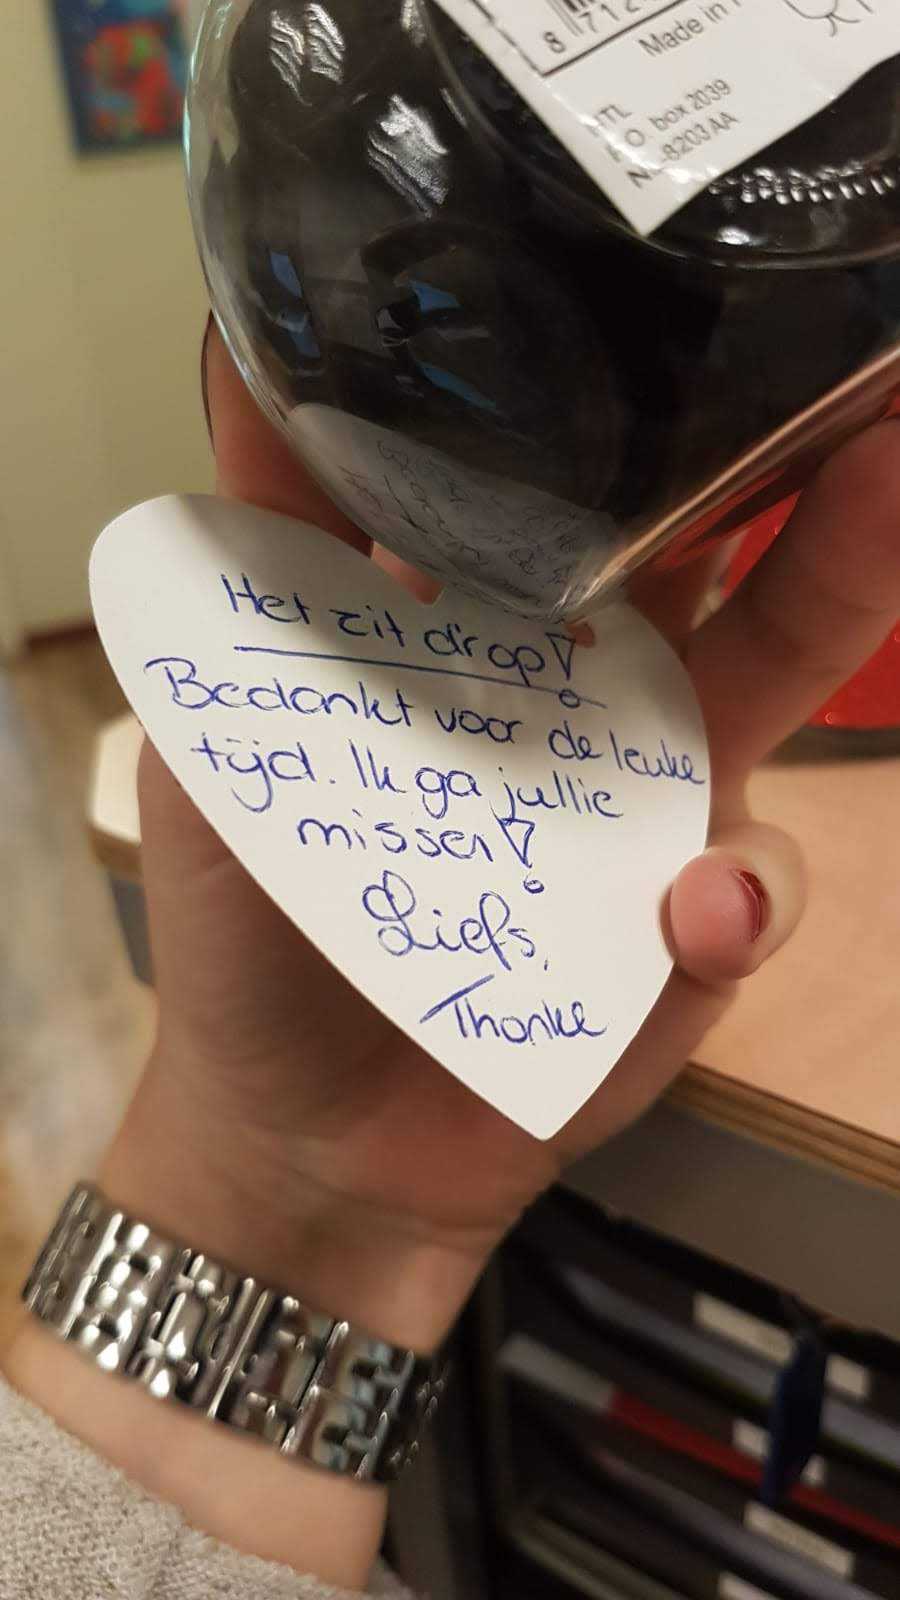 8 712
Made in
P.O. box 2039
NL-8203 AA
Het zit d'rop!
Bedankt voor de leuke
tijd. Ik ga jullie
missen!
Liefs,
Thonke